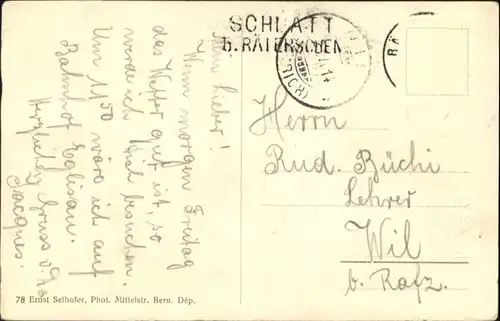 SCHLATT
b. RÄTERSCHEN
Mein Lieber!
Wenn morgen Freitag
das Wetter gut ist, so
werde ich Dich besuchen.
Um 11⁵⁰ wäre ich auf
Bahnhof Eglisau.
Herzlichen Gruss v. Ha
Jacques.
Herrn
Rud. Büchi
Lehrer
Wil
b. Rafz.
78 Ernst Selhofer, Phot. Mittelstr. Bern. Dép.